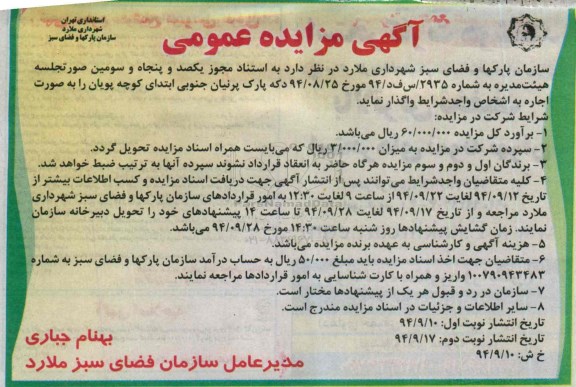 استانداری تهران
شهرداری ملارد
سازمان پارکها و فضای سبز
آگهی مزایده عمومی
سازمان پارکها و فضای سبز شهرداری ملارد در نظر دارد به استناد مجوز یکصد و پنجاه و سومین صورتجلسه
هیئت‌مدیره به شماره ۲۹۳۵/س‌ف‌د/۹۴ مورخ ۹۴/۰۸/۲۵ دکه پارک پرنیان جنوبی ابتدای کوچه پویان را به صورت
اجاره به اشخاص واجدشرایط واگذار نماید.
شرایط شرکت در مزایده:
۱- برآورد کل مزایده ۶۰/۰۰۰/۰۰۰ ریال می‌باشد.
۲- سپرده شرکت در مزایده به میزان ۳/۰۰۰/۰۰۰ ریال که می‌بایست همراه اسناد مزایده تحویل گردد.
۳- برندگان اول و دوم و سوم مزایده هرگاه حاضر به انعقاد قرارداد نشوند سپرده آنها به ترتیب ضبط خواهد شد.
۴- کلیه متقاضیان واجدشرایط می‌توانند پس از انتشار آگهی جهت دریافت اسناد مزایده و کسب اطلاعات بیشتر از
تاریخ ۹۴/۰۹/۱۲ لغایت ۹۴/۰۹/۲۲ از ساعت ۹ لغایت ۱۲:۳۰ به امور قراردادهای سازمان پارکها و فضای سبز شهرداری
ملارد مراجعه و از تاریخ ۹۴/۰۹/۱۷ لغایت ۹۴/۰۹/۲۸ تا ساعت ۱۴ پیشنهادهای خود را تحویل دبیرخانه سازمان
نمایند. زمان گشایش پیشنهادها روز شنبه ساعت ۱۴:۳۰ مورخ ۹۴/۰۹/۲۸ می‌باشد.
۵- هزینه آگهی و کارشناسی به عهده برنده مزایده می‌باشد.
۶- متقاضیان جهت اخذ اسناد مزایده باید مبلغ ۵۰/۰۰۰ ریال به حساب درآمد سازمان پارکها و فضای سبز به شماره
۱۰۰۷۹۰۹۴۳۴۸۳ واریز و همراه با کارت شناسایی به امور قراردادها مراجعه نمایند.
۷- سازمان در رد و قبول هر یک از پیشنهادها مختار است.
۸- سایر اطلاعات و جزئیات در اسناد مزایده مندرج است.
تاریخ انتشار نوبت اول: ۹۴/۹/۱۰
تاریخ انتشار نوبت دوم: ۹۴/۹/۱۷
خ ش: ۹۴/۹/۱۰
بهنام جباری
مدیرعامل سازمان فضای سبز ملارد